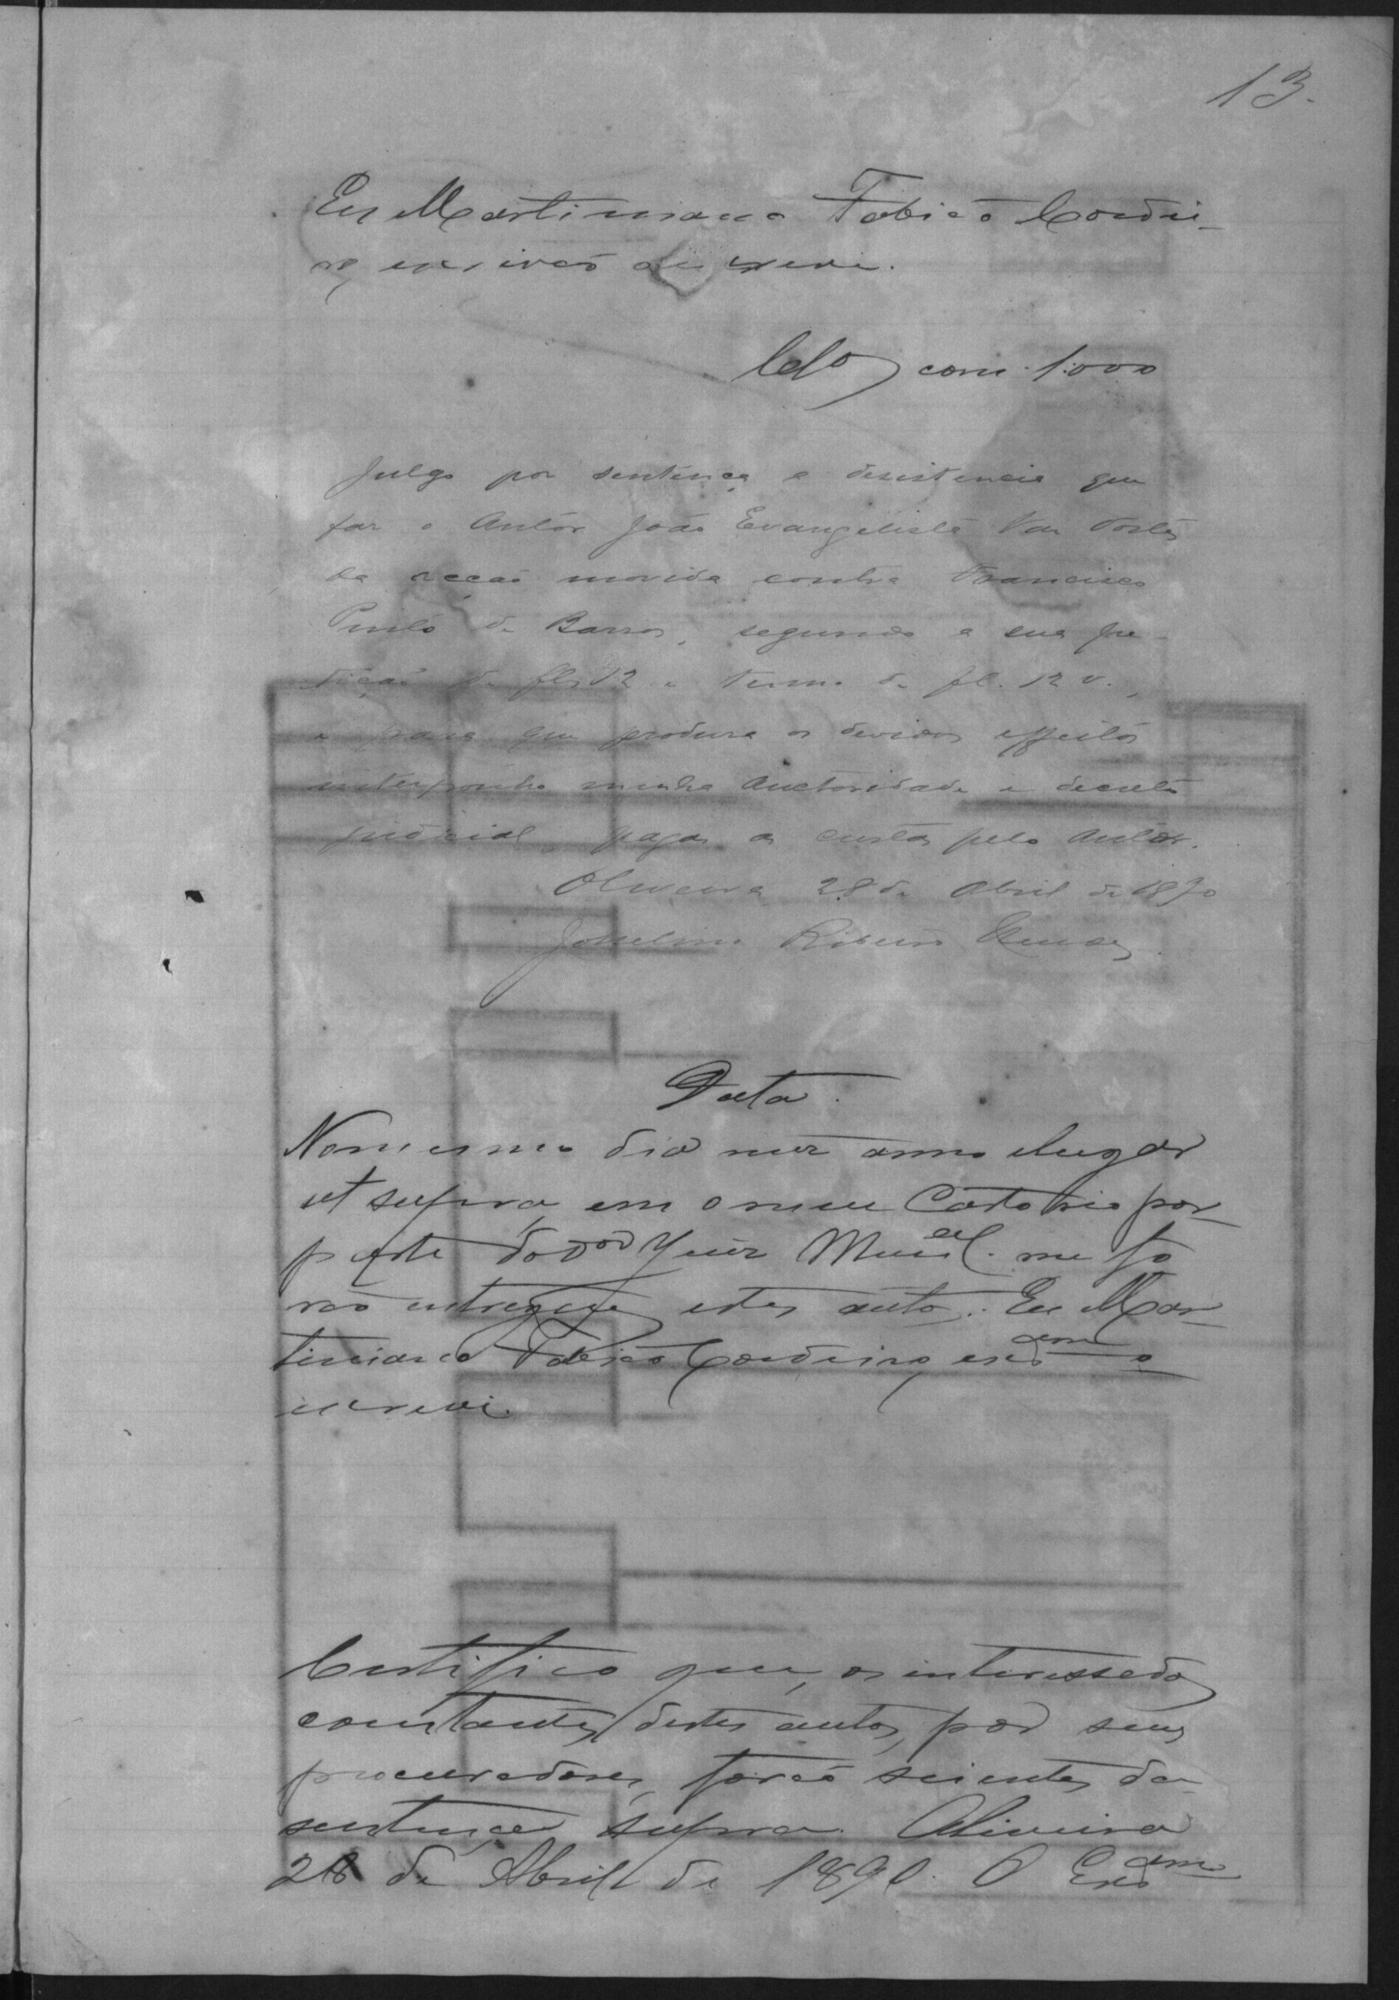 13.
Eu Martiniano Fabião Cordei-
ro, escrivão que escrevi.
Clos com 1.000
Julgo por sentença a desistencia que
faz o Autor João Evangelista Vaz Tostes
da acção movida contra Francisco
Pinto de Barros, segundo a sua pe-
tição de fls 12 e termo de fl. 12 v.,
e para que produza os devidos effeitos
interponho minha Auctoridade e decreto
judicial, pagas as custas pelo Autor.
Oliveira 28 de Abril de 1890
Ribeiro
Data.
No mesmo dia mez anno e lugar
ut supra em o meu Cartorio por
parte do Dor Juiz Munal. me fo
rão entregues estes autos. Eu Mar-
tiniano Fabião Cordeiro, escam o
escrevi.
Certifico que, os interessados
constantes destes autos, por seus
procuradores, forão scientes da
sentença supra. Oliveira
28 de Abril de 1890. O Escam